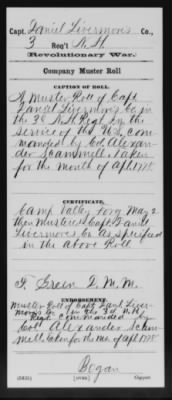 Capt. Daniel Livermore's Co.,
3 Reg't N.H.
Revolutionary War.
Company Muster Roll
CAPTION OF ROLL.
A Muster Roll of Capt
Daniel Livermores Co in
the 3d N.H. Regt in the
service of the U.S. com-
manded by Col Alexan-
der Scammell. Taken
for the month of Apl 1778
CERTIFICATE.
Camp Valley Forg May 2
then Mustered Capt Danl
Livermores Co as specified
in the above Roll
T. Green D.M.M.
ENDORSEMENT.
Muster Roll of Capt Danl Liver-
mores Co in the 3d N.H.
Regt Commanded by
Coll Alexander Scham-
mell taken for the mo. of Apl 1778
Bogan
(563i) (OVER) Copyist